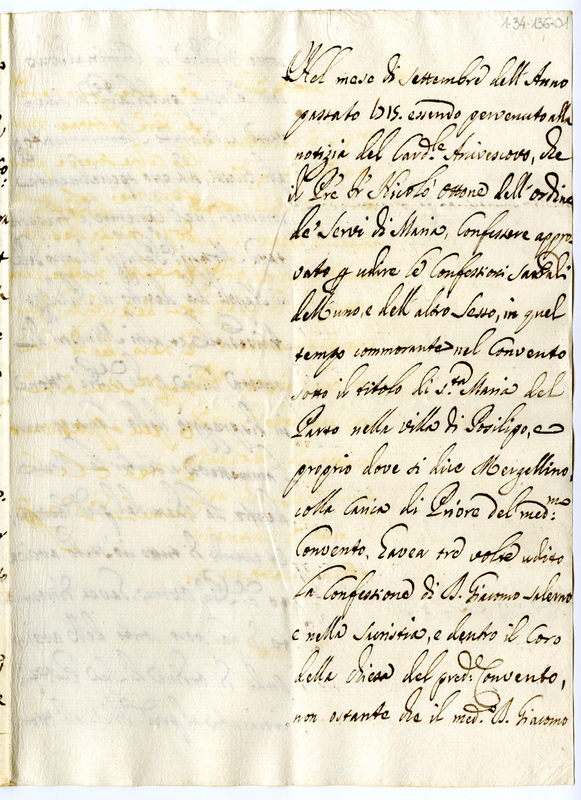 1-34-136-01
Nel mese di settembre dell'Anno
passato 1715. essendo pervenuto alla
notizia del Card.le Arcivescovo, che
il P̄re fr Nicolò Ottone dell'ordine
de' Servi di Maria, Confessore appro
vato p udire le Confessioni Sac̄ali
dell'uno, e dell'altro Sesso, in quel
tempo commorante nel Convento
sotto il titolo di S.ta Maria del
Parto nella villa di Posilipo, e
proprio dove si dice Mergellino,
colla carica di Priore del med.mo
Convento, havea tre volte udito
la Confessione di D. Giacomo Salerno
e nella Sacristia, e dentro il Coro
della Chiesa del pred.o Convento,
non ostante che il med.o D. Giacomo